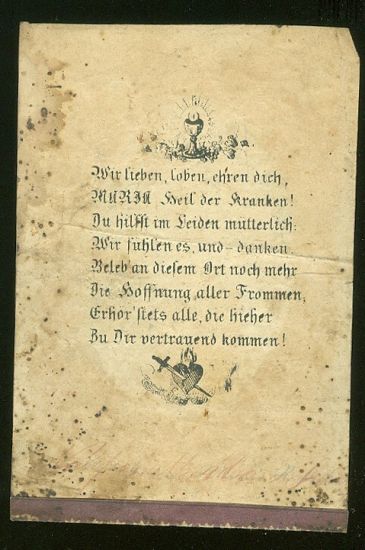 Wir lieben, loben, ehren dich,
MARIA Heil der Kranken!
Du hilfst im Leiden mütterlich:
Wir fühlen es, und – danken
Beleb' an diesem Ort noch mehr
Die Hoffnung aller Frommen,
Erhör' stets alle, die hieher
Zu Dir vertrauend kommen!